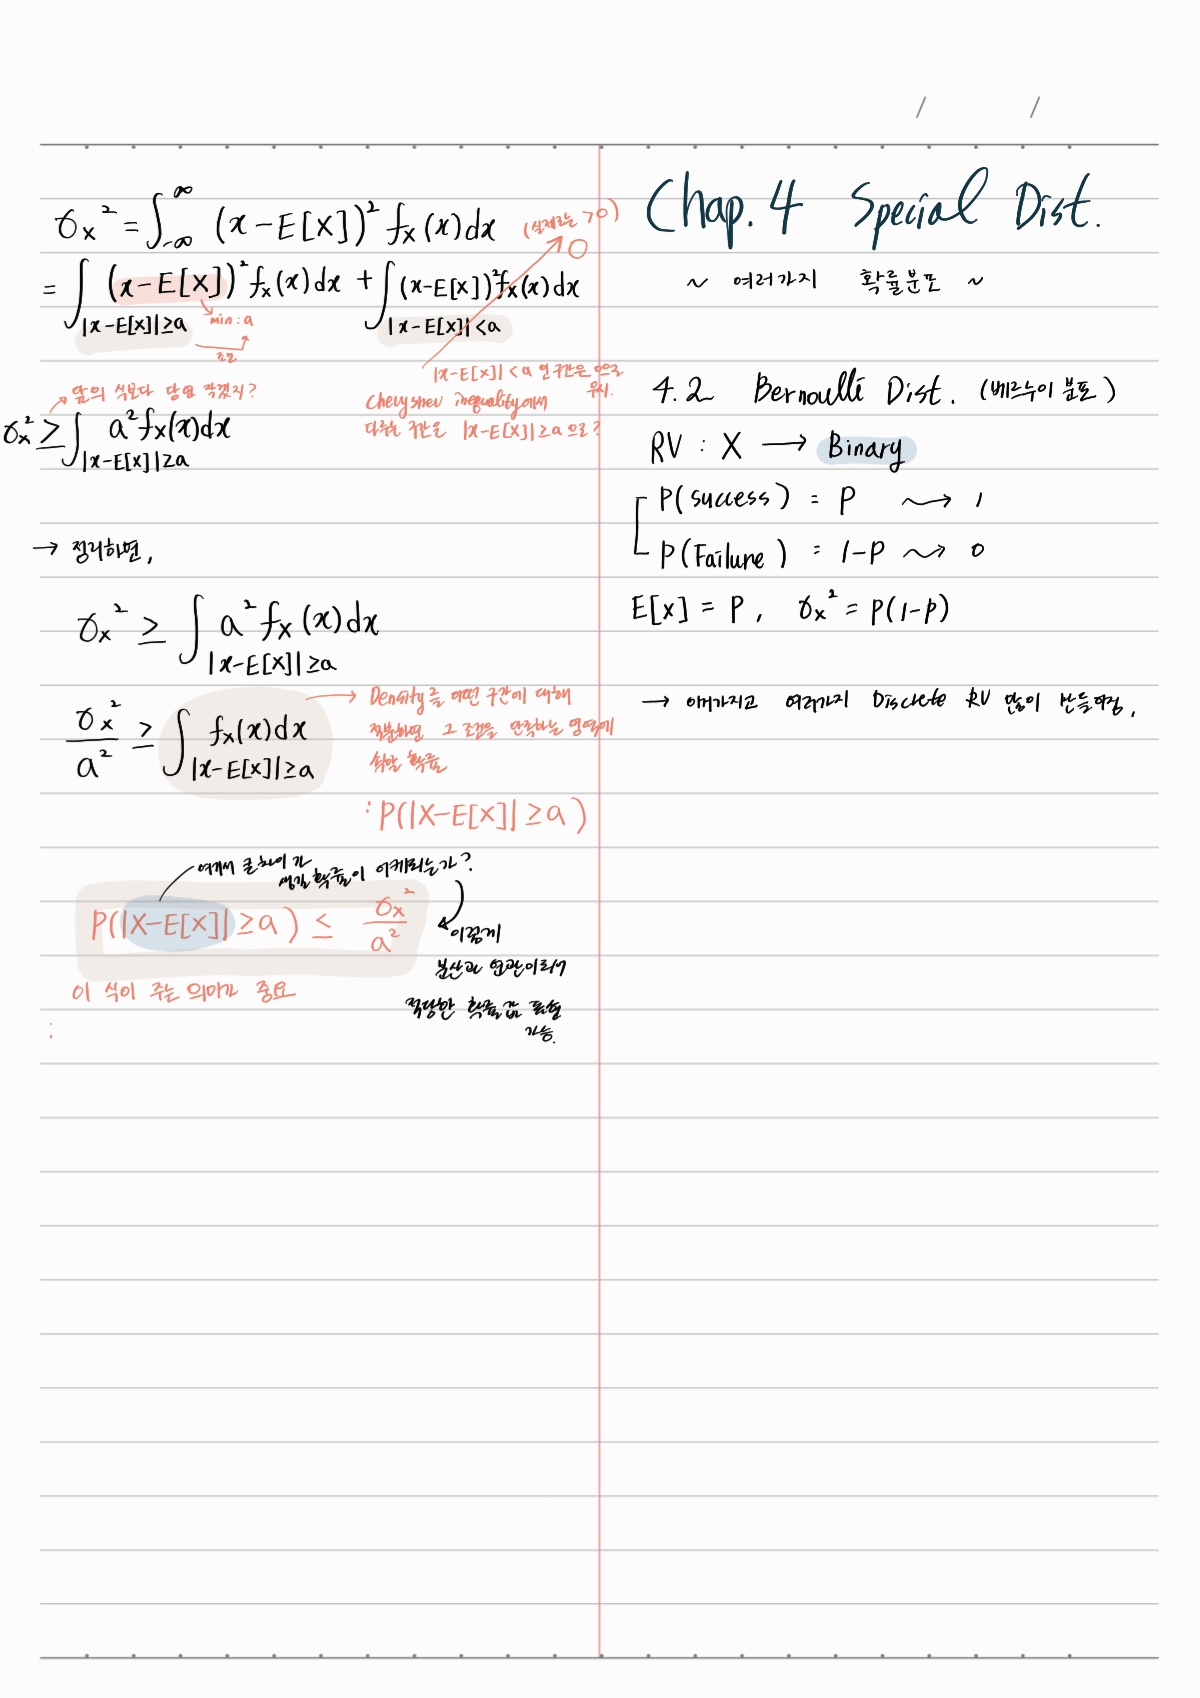 σx² = ∫-∞^∞ (x-E[X])² fx(x)dx (실제로는 >0)
0
= ∫|x-E[X]|≥a (x-E[X])² fx(x)dx + ∫|x-E[X]|<a (x-E[X])² fx(x)dx
min : a
조건
|x-E[X]| < a 인 구간은 0으로 무시.
Chevyshev inequality에서
다루는 구간은 |x-E[X]| ≥ a 으로?
앞의 식보다 당연 작겠지?
σx² ≥ ∫|x-E[X]|≥a a² fx(x)dx
→ 정리하면,
σx² ≥ ∫|x-E[X]|≥a a² fx(x)dx
σx²/a² ≥ ∫|x-E[X]|≥a fx(x)dx
→ Density를 어떤 구간에 대해
적분하면 그 조건을 만족하는 영역에
속할 확률
: P(|X-E[X]| ≥ a)
여기서 클 차이가
생길 확률이 어케되는가?
P(|X-E[X]| ≥ a) ≤ σx²/a²
이렇게
분산과 연관이어
적당한 확률값 표현
가능.
이 식이 주는 의미가 중요
:
/ /
Chap. 4 Special Dist.
~ 여러가지 확률분포 ~
4.2 Bernoulli Dist. (베르누이 분포)
RV : X → Binary
P(success) = P ⇝ 1
P(Failure) = 1-P ⇝ 0
E[x] = P, σx² = P(1-P)
→ 이거가지고 여러가지 Discrete RV 많이 만들어짐,